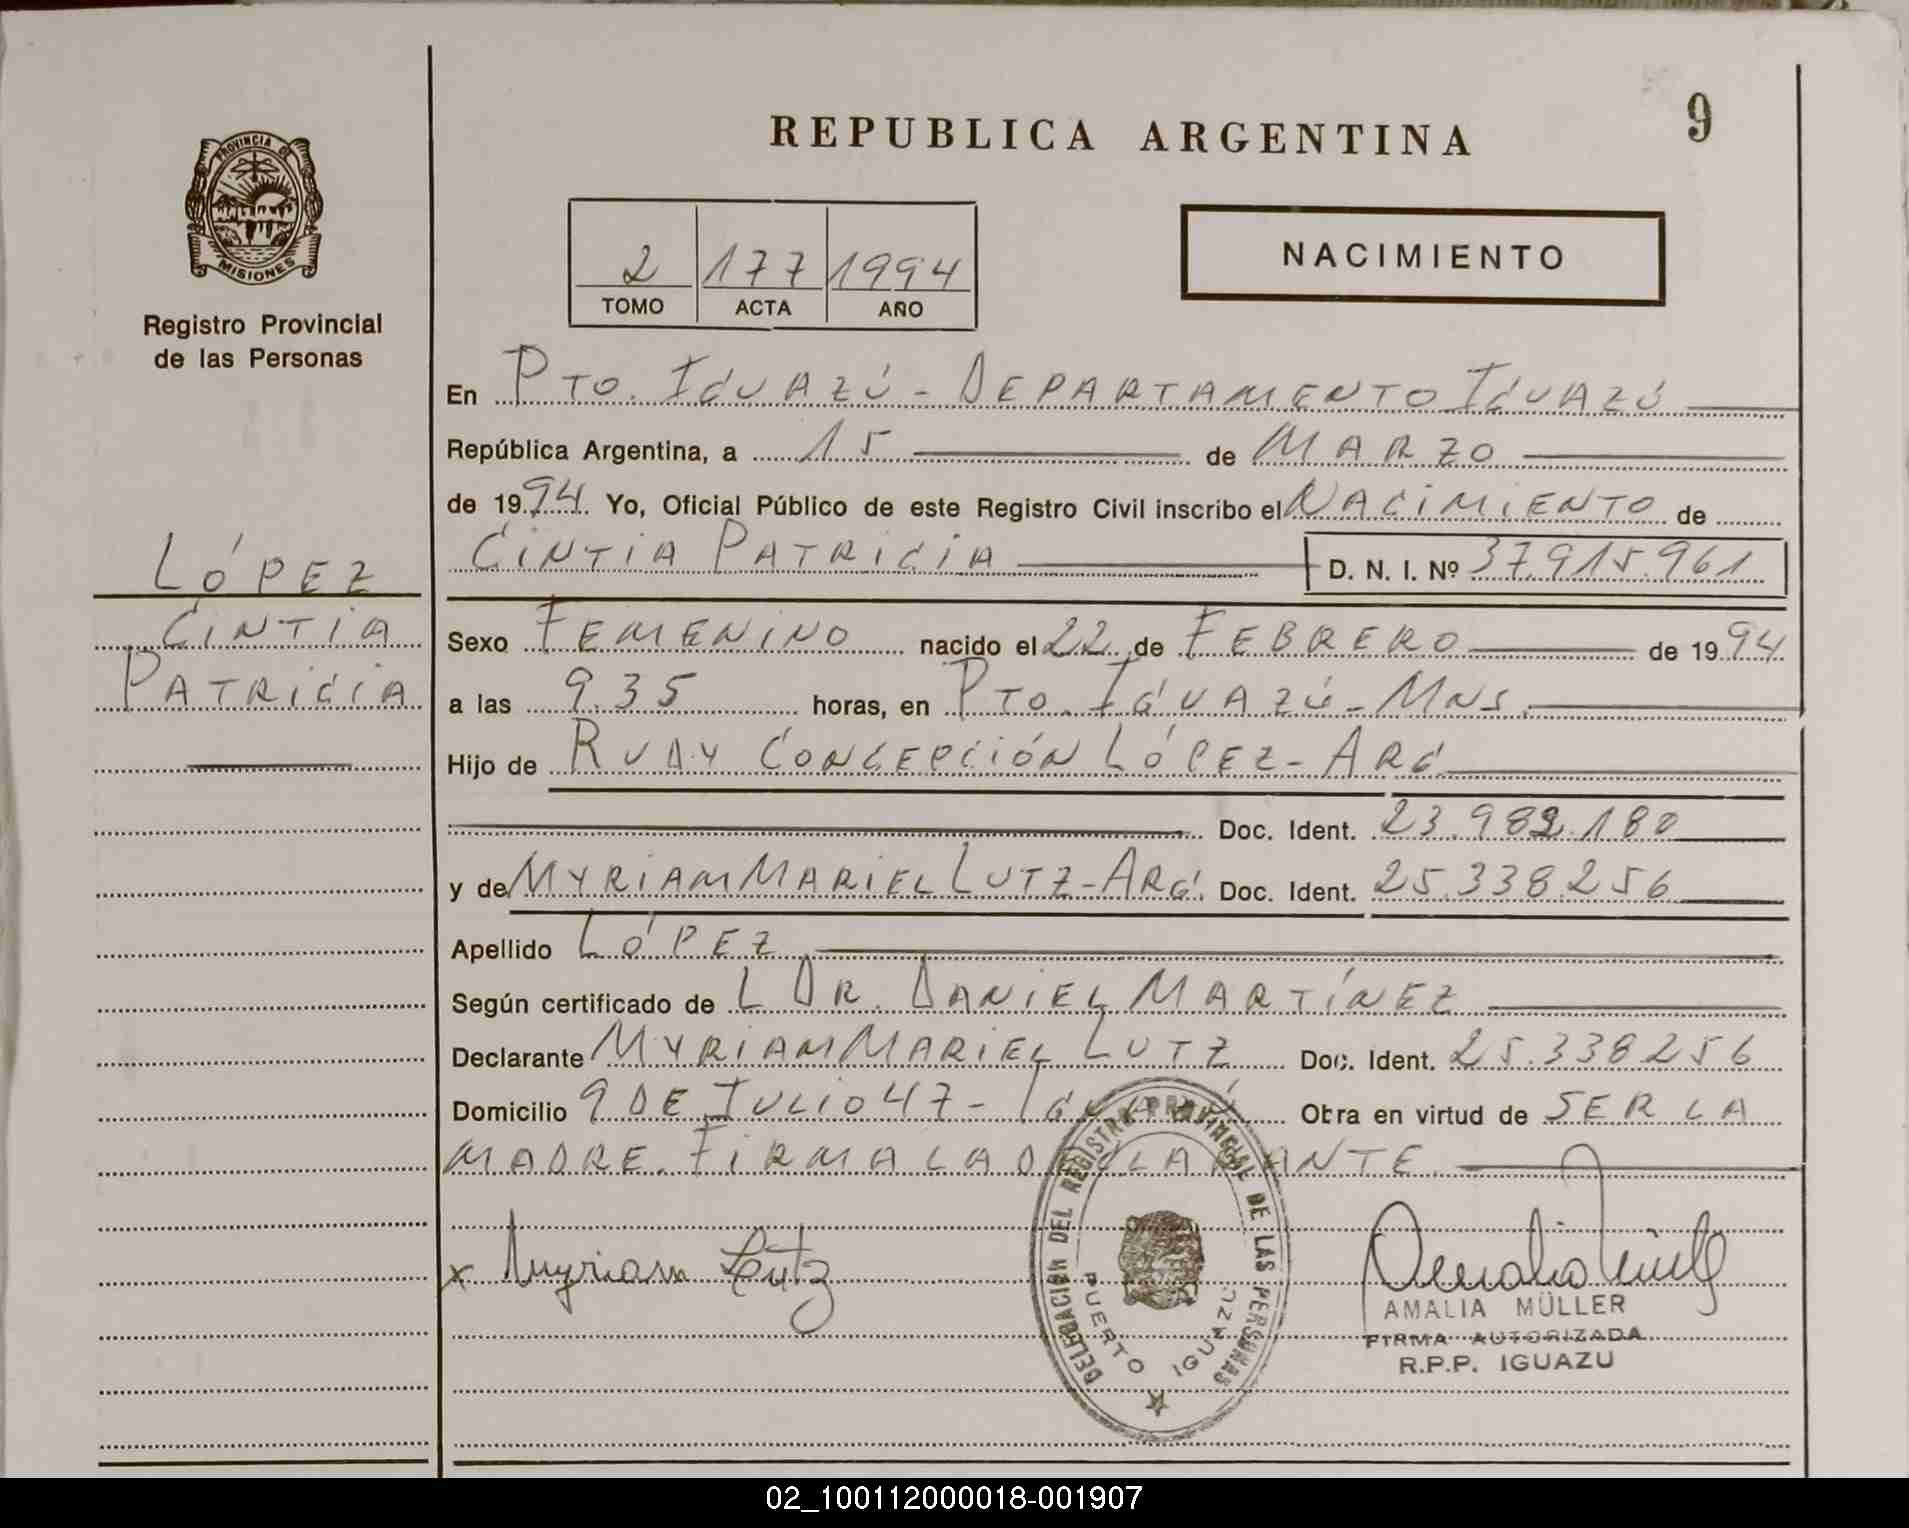 REPUBLICA ARGENTINA
9
PROVINCIA DE
MISIONES
Registro Provincial
de las Personas
2 177 1994
TOMO ACTA AÑO
NACIMIENTO
En PTO. IGUAZÚ - DEPARTAMENTO IGUAZÚ
República Argentina, a 15 de MARZO
de 1994. Yo, Oficial Público de este Registro Civil inscribo el NACIMIENTO de
CINTIA PATRICIA D. N. I. Nº 37.915.961
LÓPEZ
CINTIA
PATRICIA
Sexo FEMENINO nacido el 22 de FEBRERO de 1994
a las 9.35 horas, en PTO. IGUAZÚ - MNS.
Hijo de RUDY CONCEPCIÓN LÓPEZ - ARG
Doc. Ident. 23.982.180
y de MYRIAM MARIEL LUTZ - ARG. Doc. Ident. 25.338.256
Apellido LÓPEZ
Según certificado de L DR. DANIEL MARTÍNEZ
Declarante MYRIAM MARIEL LUTZ Doc. Ident. 25.338256
Domicilio 9 DE JULIO 47 - IGUAZÚ Obra en virtud de SER LA
MADRE. FIRMA LA DECLARANTE
x Myriam Lutz
DELEGACIÓN DEL REGISTRO PROVINCIAL DE LAS PERSONAS
PUERTO IGUAZU
AMALIA MÜLLER
FIRMA AUTORIZADA
R.P.P. IGUAZU
02_100112000018-001907